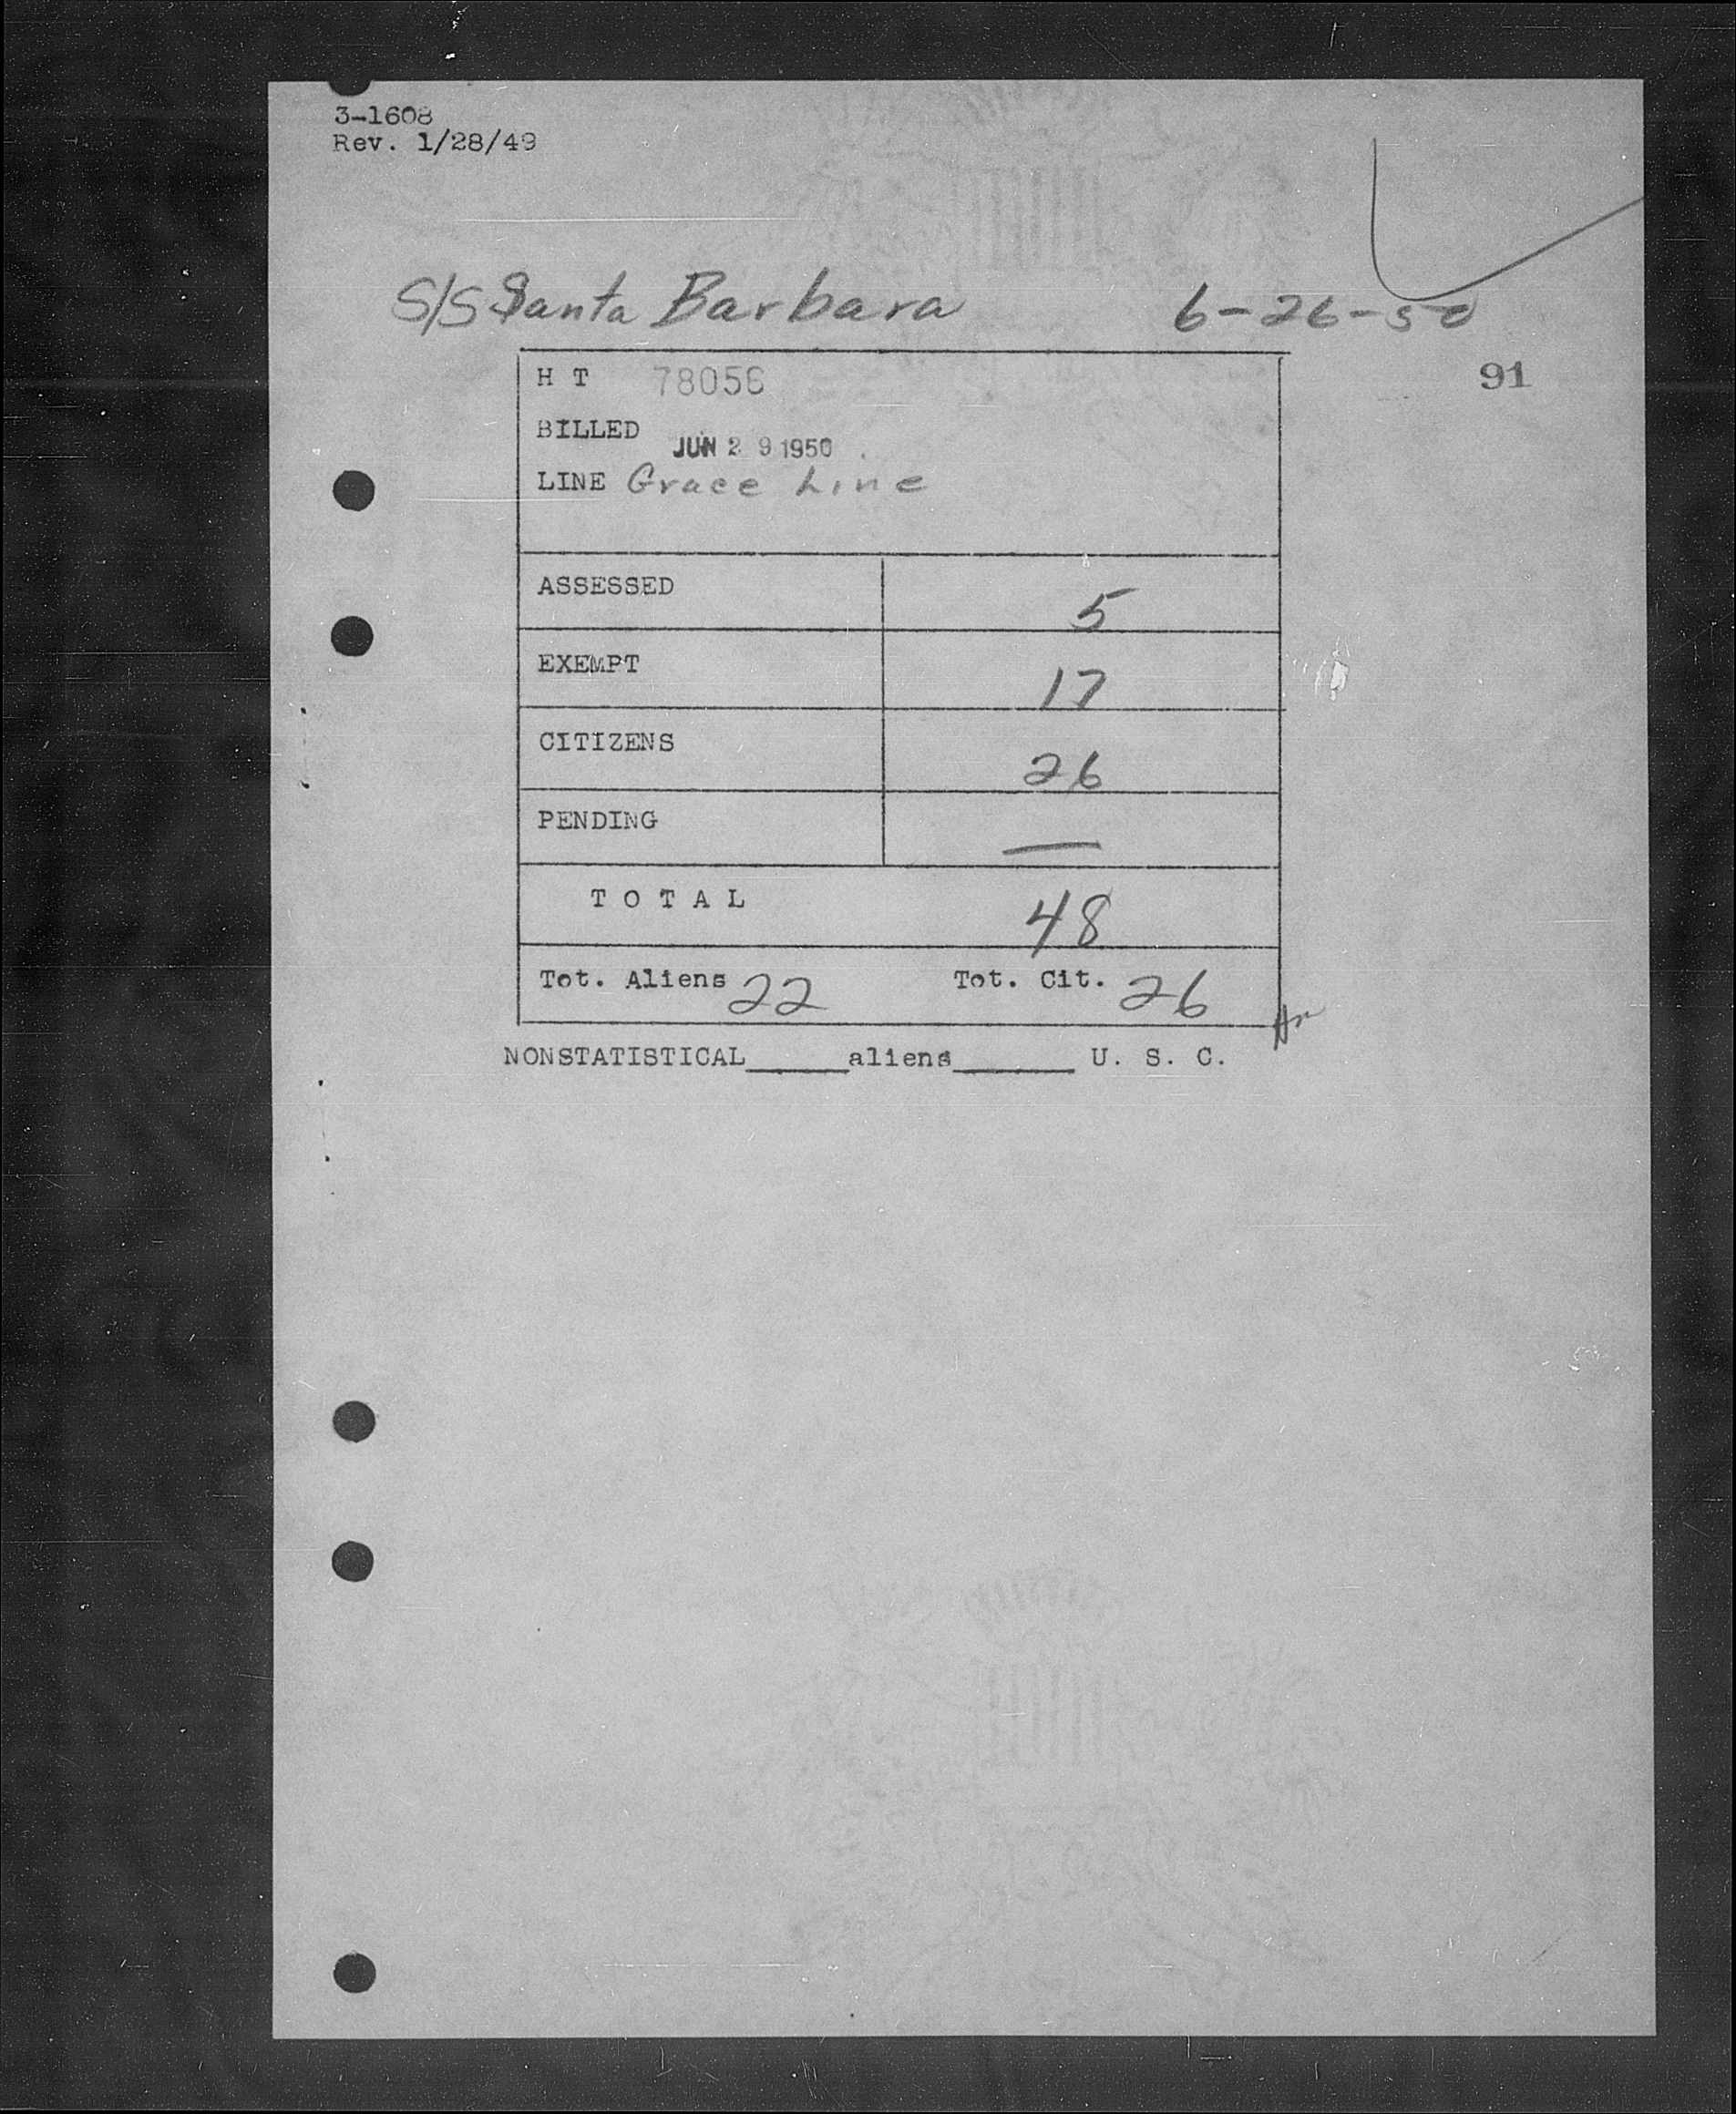 3-1608
Rev. 1/28/49
S/S Santa Barbara 6-26-50
H T 78056
91
BILLED JUN 29 1950
LINE Grace Line
ASSESSED 5
EXEMPT 17
CITIZENS 26
PENDING —
T O T A L 48
Tot. Aliens 22 Tot. Cit. 26
NONSTATISTICAL_____aliens______ U. S. C.